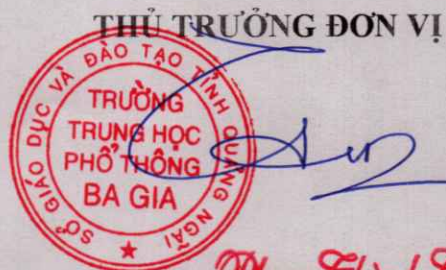 THỦ TRƯỞNG ĐƠN VỊ
SỞ GIÁO DỤC VÀ ĐÀO TẠO TỈNH QUẢNG NGÃI
TRƯỜNG
TRUNG HỌC
PHỔ THÔNG
BA GIA